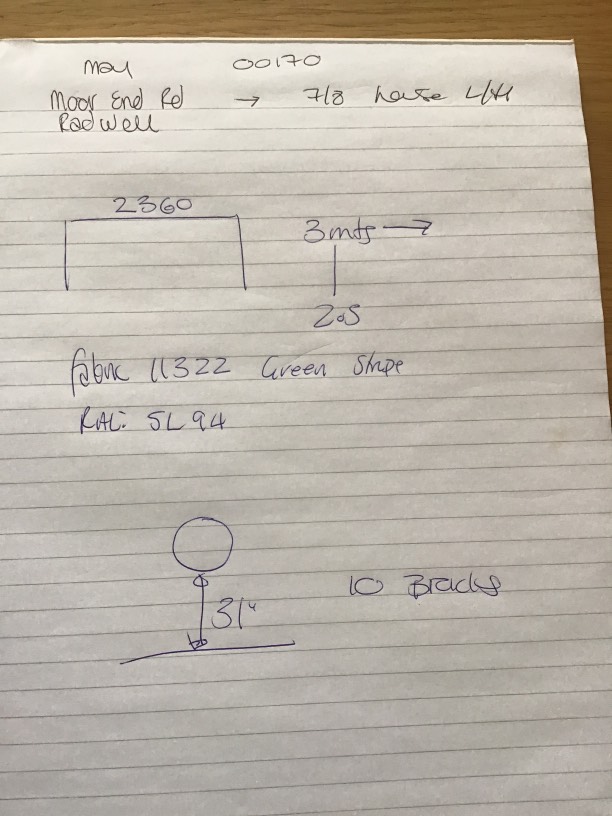 May 00170
Moor End Rd → 7/8 house L/H
Radwell
2360
3mts →
2.5
fabric 11322 Green Stripe
RAL: SL94
31"
10 Bracks